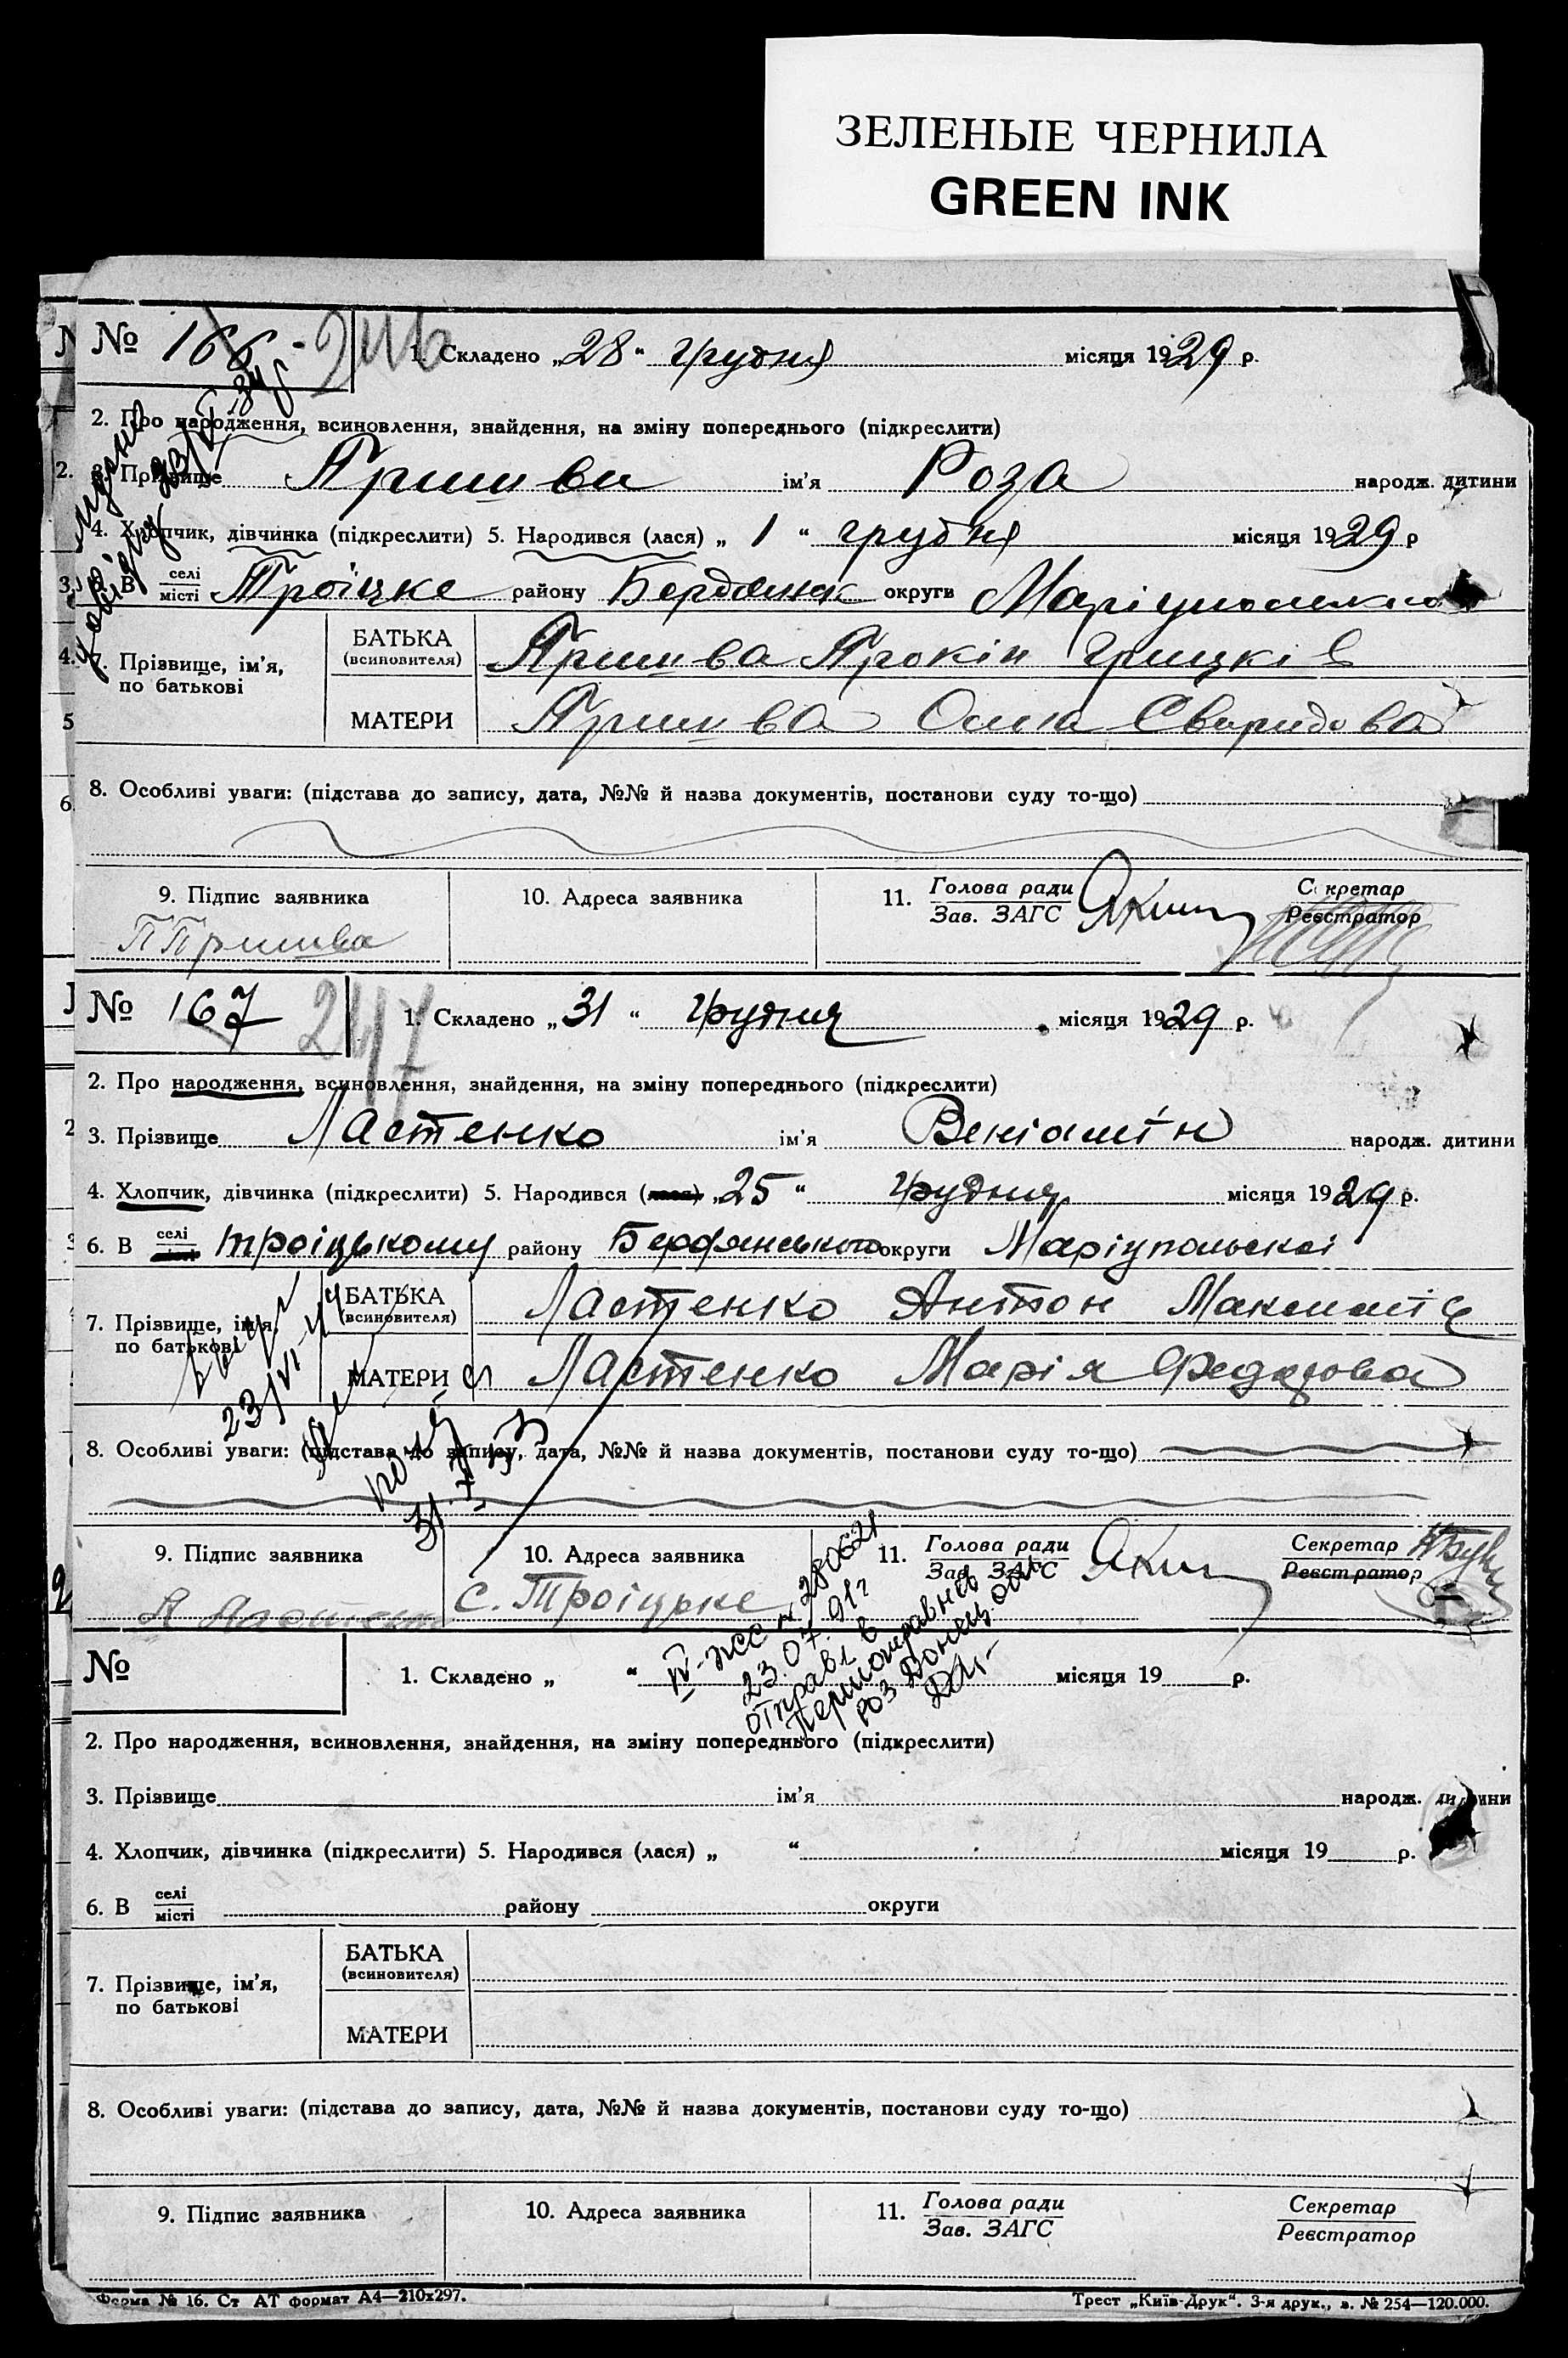 ЗЕЛЕНЫЕ ЧЕРНИЛА
GREEN INK
№ 166 - 246
1. Складено „28“ грудня місяця 1929 р.
2. Про народження, всиновлення, знайдення, на зміну попереднього (підкреслити)
3. Прізвище ім'я Роза народж. дитини
4. Хлопчик, дівчинка (підкреслити) 5. Народився (лася) „1“ грудня місяця 1929 р
В селі місті Троіцке району Бердянск округи
7. Прізвище, ім'я, по батькові
БАТЬКА (всиновителя) Прокіп Грицків
МАТЕРИ Свиридова
8. Особливі уваги: (підстава до запису, дата, №№ й назва документів, постанови суду то-що)
9. Підпис заявника
10. Адреса заявника
11. Голова ради Зав. ЗАГС
Секретар Реєстратор
№ 167 247
1. Складено „31“ грудня місяця 1929 р.
2. Про народження, всиновлення, знайдення, на зміну попереднього (підкреслити)
3. Прізвище Ластенко ім'я Веніамін народж. дитини
4. Хлопчик, дівчинка (підкреслити) 5. Народився (лася) „25“ грудня місяця 1929 р.
6. В селі місті Троіцькому району Бердянського округи Маріупольскоі
7. Прізвище, ім'я, по батькові
БАТЬКА (всиновителя) Ластенко Антон Максимів
МАТЕРИ Ластенко Марія Федорова
23/VI-
8. Особливі уваги: (підстава до запису, дата, №№ й назва документів, постанови суду то-що)
9. Підпис заявника
10. Адреса заявника
с. Троіцьке
11. Голова ради Зав. ЗАГС
Секретар Реєстратор
№ 280621
23.07.91г
отправл в
Першотравнев
роз Донец. обл
№
1. Складено „ “ місяця 19 р.
2. Про народження, всиновлення, знайдення, на зміну попереднього (підкреслити)
3. Прізвище ім'я народж. дитини
4. Хлопчик, дівчинка (підкреслити) 5. Народився (лася) „ “ місяця 19 р.
6. В селі місті району округи
7. Прізвище, ім'я, по батькові
БАТЬКА (всиновителя)
МАТЕРИ
8. Особливі уваги: (підстава до запису, дата, №№ й назва документів, постанови суду то-що)
9. Підпис заявника
10. Адреса заявника
11. Голова ради Зав. ЗАГС
Секретар Реєстратор
Форма № 16. Ст АТ формат А4—210х297.
Трест „Київ-Друк“. 3-я друк., з. № 254—120.000.